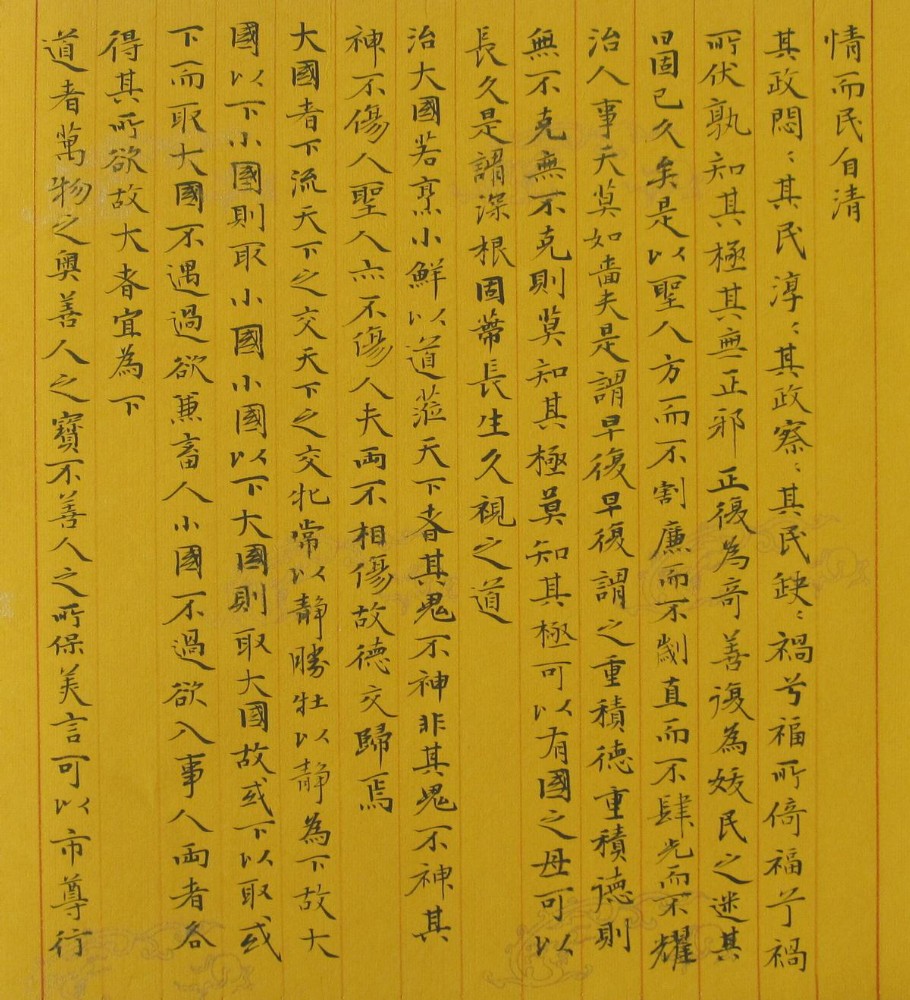 情而民自清
其政悶〻其民淳〻其政察〻其民缺〻禍兮福所倚福兮禍
所伏孰知其極其無正邪正復為奇善復為妖民之迷其
日固已久矣是以聖人方而不割廉而不劌直而不肆光而不耀
治人事天莫如嗇夫是謂早復早復謂之重積德重積德則
無不克無不克則莫知其極莫知其極可以有國之母可以
長久是謂深根固蔕長生久視之道
治大國若烹小鮮以道蒞天下者其鬼不神非其鬼不神其
神不傷人聖人亦不傷人夫兩不相傷故德交歸焉
大國者下流天下之交天下之交牝常以靜勝牡以靜為下故大
國以下小國則取小國小國以下大國則取大國故或下以取或
下而取大國不遇過欲兼畜人小國不過欲入事人兩者各
得其所欲故大者宜為下
道者萬物之奧善人之寶不善人之所保美言可以市尊行